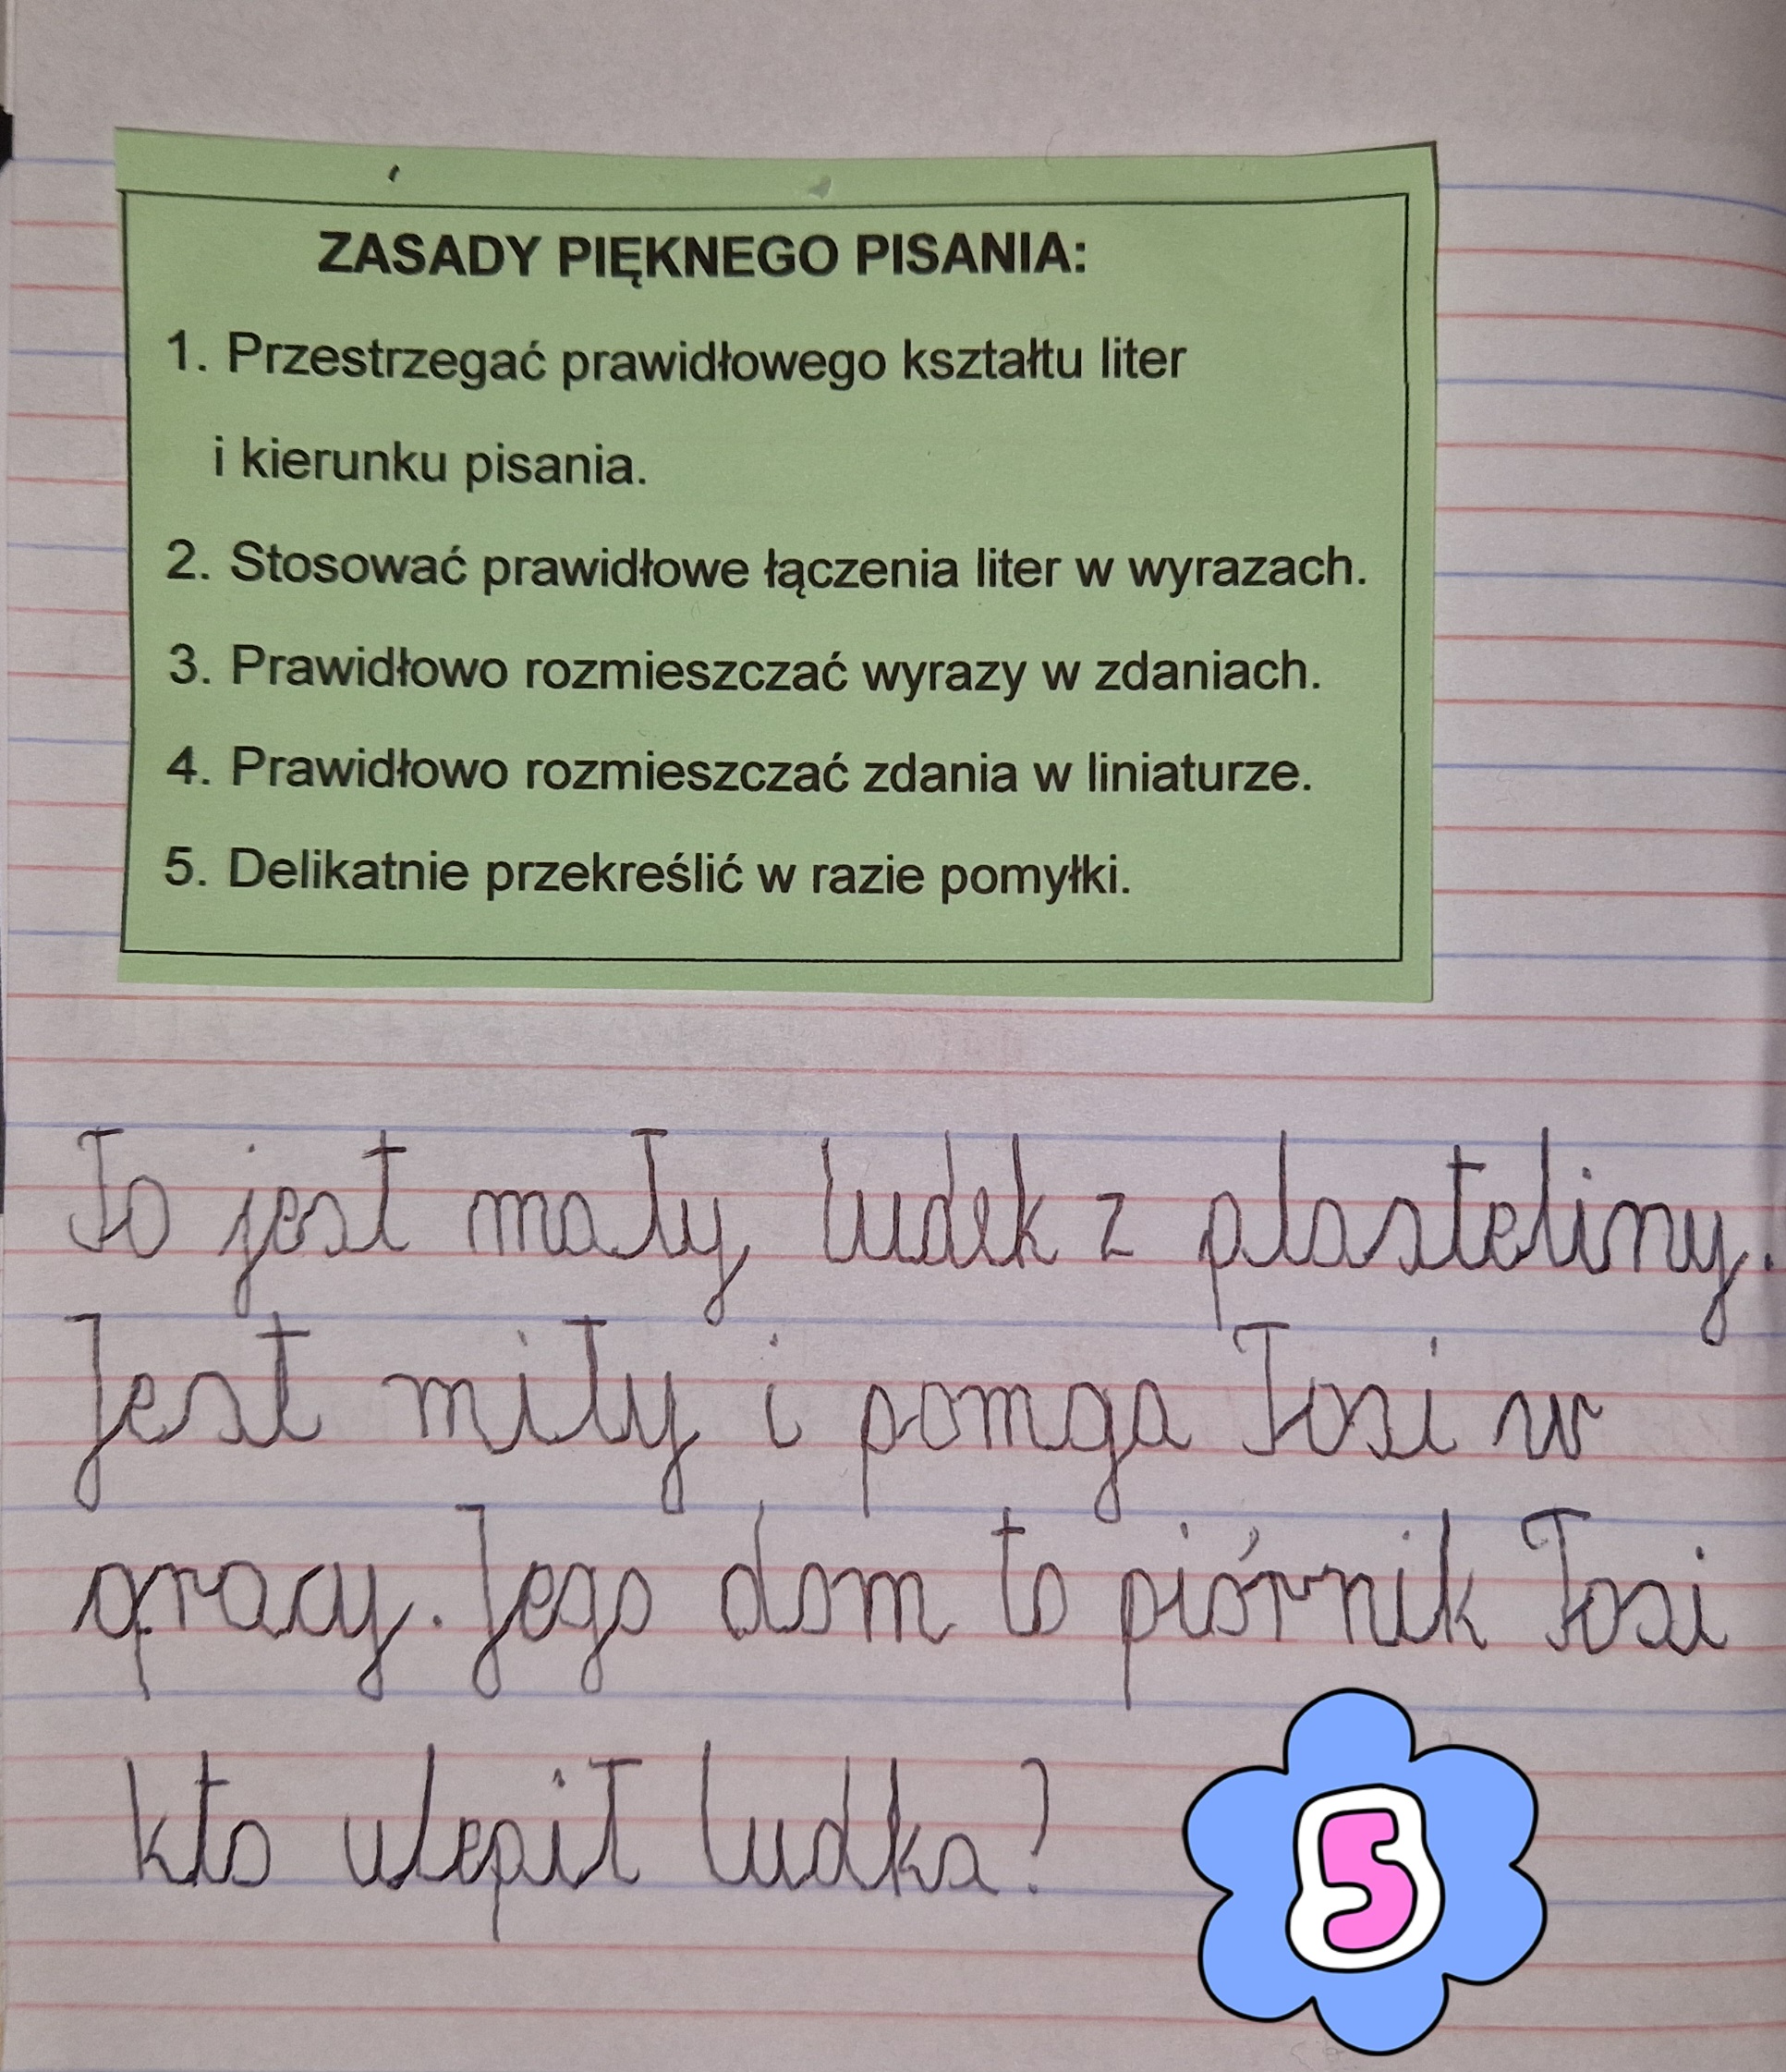 ZASADY PIĘKNEGO PISANIA:
1. Przestrzegać prawidłowego kształtu liter
i kierunku pisania.
2. Stosować prawidłowe łączenia liter w wyrazach.
3. Prawidłowo rozmieszczać wyrazy w zdaniach.
4. Prawidłowo rozmieszczać zdania w liniaturze.
5. Delikatnie przekreślić w razie pomyłki.
To jest mały ludek z plasteliny.
Jest miły i pomga Tosi w
pracy. Jego dom to piórnik Tosi
kto ulepił ludka?
5